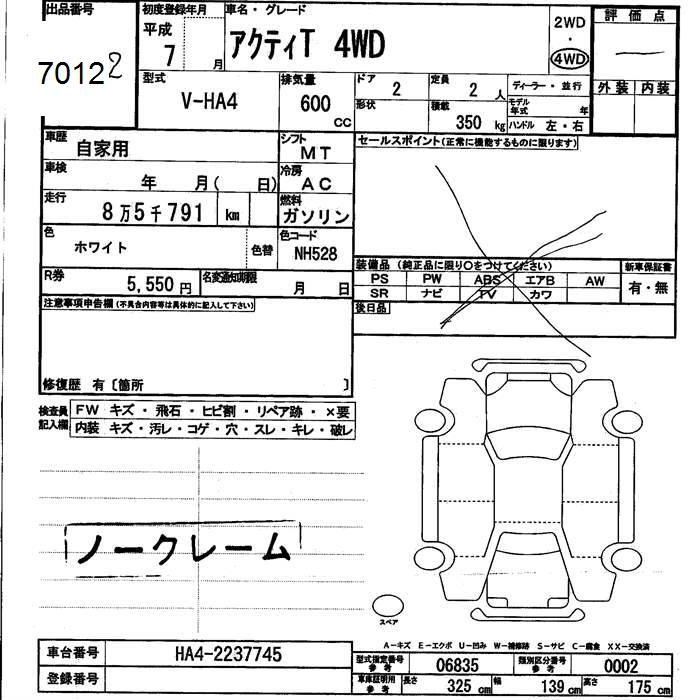 出品番号
70122
初度登録年月
平成
7 月
車名・グレード
アクティT 4WD
2WD
・
4WD
評価点
外装 内装
型式
V-HA4
排気量
600
CC
ドア
2
定員
2 人
ディーラー・並行
形状
積載
350 kg
モデル年式 年
ハンドル 左・右
車歴
自家用
シフト
MT
セールスポイント(正常に機能するものに限ります)
車検
年 月( 日)
冷房
AC
走行
8万5千791 km
燃料
ガソリン
色
ホワイト
色替
色コード
NH528
装備品 (純正品に限り○をつけてください)
新車保証書
PS PW ABS エアB AW
SR ナビ TV カワ
有・無
R券
5,550 円
名変通知期限
月 日
後日品
注意事項申告欄 (不具合内容等は具体的に記入して下さい)
修復歴 有〔箇所 〕
検査員記入欄
FW キズ・飛石・ヒビ割・リペア跡・×要
内装 キズ・汚レ・コゲ・穴・スレ・キレ・破レ
ノークレーム
スペア
A-キズ E-エクボ U-凹み W-補修跡 S-サビ C-腐食 XX-交換済
車台番号
HA4-2237745
登録番号
型式指定番号 参考
06835
類別区分番号 参考
0002
車庫証明用 参考
長さ 325 cm
幅 139 cm
高さ 175 cm